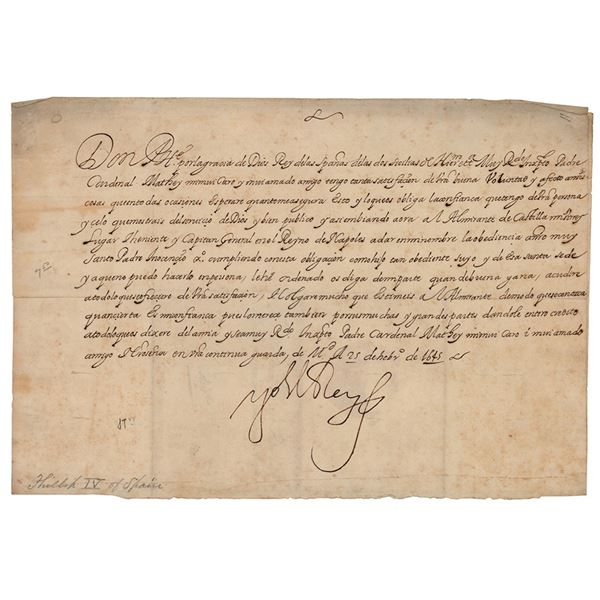 Don Phe. por la gracia de Dios Rey de las españas de las dos Sicilias de Hierm. etc. Muy Rdo. in xpto Padre
Cardenal Mathey mi muy Caro y muy amado amigo tengo tanta satisfaçion de Vra buena Voluntad y afecto a mis
cosas que en todas ocasiones espero quanto me asegura esto y lo que os obliga la confiança que tengo de Vra persona
y celo que mostrais del servicio de Dios y bien publico y assi embiando aora al Almirante de Castilla mi
lugar Theniente y Capitan General en el Reyno de Napoles a dar en mi nombre la obediencia a nro muy
Santo Padre Inocençio X cumpliendo con esta obligaçion como hijo tan obediente suyo y de essa santa sede
ya que no puedo hazerlo en persona, le he ordenado os diga de mi parte quan de buena gana, acudire
a todo lo que se ofreciere de Vra satisfaçion, y holgare mucho que estimeis al Almirante de modo que conozca
quan cierta es mi confiança pues lo merece tambien por sus muchas y grandes partes dandole entero credito
a todo lo que os dixere de la mia y sea muy Rdo. in xpto Padre Cardenal Mathey mi muy Caro i mui amado
amigo Nro Señor en vra continua guarda, de Md. A 25 de hebro. de 1645
yo el Rey
Phillip IV of Spain